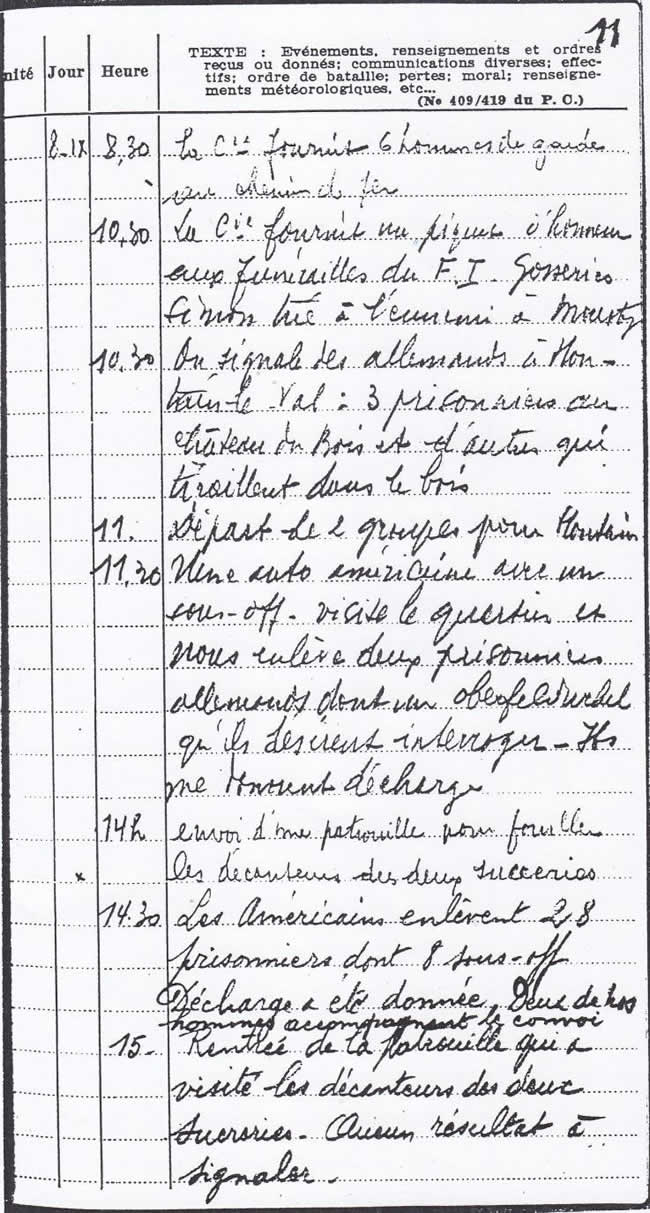 11
TEXTE : Evénements, renseignements et ordres
reçus ou donnés; communications diverses; effec-
tifs; ordre de bataille; pertes; moral; renseigne-
ments météorologiques, etc...
(No 409/419 du P. C.)
nité Jour Heure
8-IX 8,30 La Cie fournit 6 hommes de garde
au chemin d fer
10,30 La Cie fournit un piquet d'honneur
aux funérailles du F.I. Gosseries
Simon tué à l'ennemi à Mousty
10,30 On signale des allemands à Hou-
tain-le-Val : 3 prisonniers au
château du Bois et d'autres qui
tiraillent dans le bois
11. Départ de 2 groupes pour Houtain
11,30 Une auto américaine avec un
sous-off. visite le quartier et
nous enlève deux prisonniers
allemands dont un oberfeldwebel
qu'ils désirent interroger - Ils
me donnent décharge
14h envoi d'une patrouille pour fouiller
les décanteurs des deux sucreries
x
14.30 Les Américains enlèvent 28
prisonniers dont 8 sous-off
Décharge a été donnée. Deux de nos
hommes accompagnent le convoi
15- Rentrée de la patrouille qui a
visité les décanteurs des deux
sucreries - Aucun résultat à
signaler.